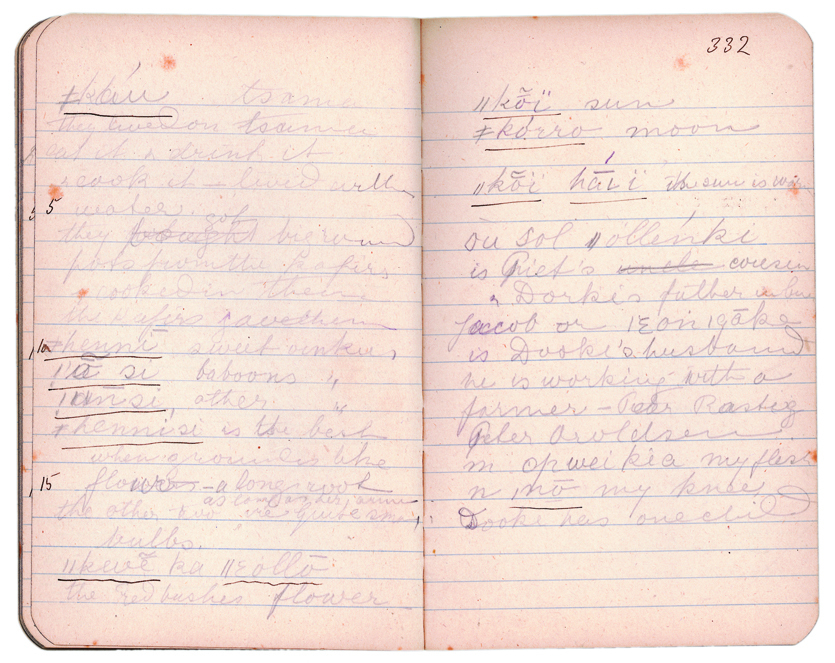 ǂkáu tsama
they lived on tsama
eat it & drink it
& cook it – lived without
5 water.
they bought got big round
pots from the Kafirs
& cooked in them
the Kafirs gave them
10 ǂhenni sweet
si baboons "
si other "
ǂhennisi is the best
when ground is like
15 flour – a long root
as long as her arm
the other two are quite small
bulbs.
ǁkewē ka ǁɛollo
the red bushes flower
332
ǁkõï sun
ǂkórro moon
ǁkõï hāíï the sun is warm
ou sol ǁollenki
is Piet's uncle cousin
Dorkis father in law
Jacob or
is Dooki's husband
he is working with a
farmer – Peter
Peter
m opwei kia my flesh
n mō my knee
Dooki has one child